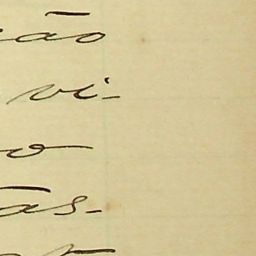 ção
vi-
o
as-